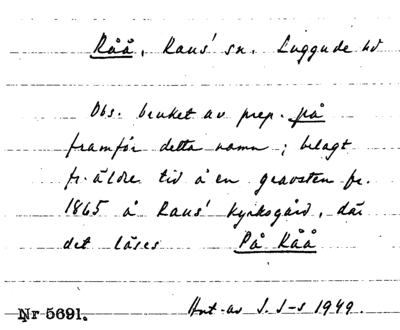 Råå, Raus' sn. Luggude hd
Obs. bruket av prep. på
framför detta namn; belagt
fr. äldre tid å en gravsten fr.
1865 å Raus' kyrkogård, där
det läses På Råå
Nr 5691. Ant. av I. I-s 1949.